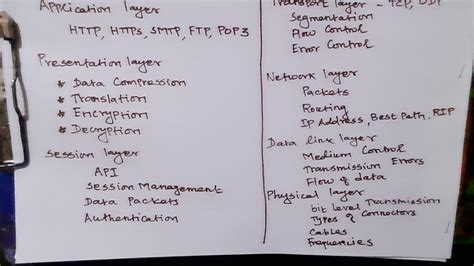 Application layer
HTTP, HTTPs, SMTP, FTP, POP3
Presentation layer
* Data Compression
* Translation
* Encryption
* Decryption
Session layer
API
Session Management
Data Packets
Authentication
Transport layer - TCP, UDP
Segmentation
Flow Control
Error Control
Network layer
Packets
Routing
IP Address, Best Path, RIP
Data link layer
Medium Control
Transmission Errors
Flow of data
Physical layer
bit Level Transmission
Types of Connectors
Cables
Frequencies